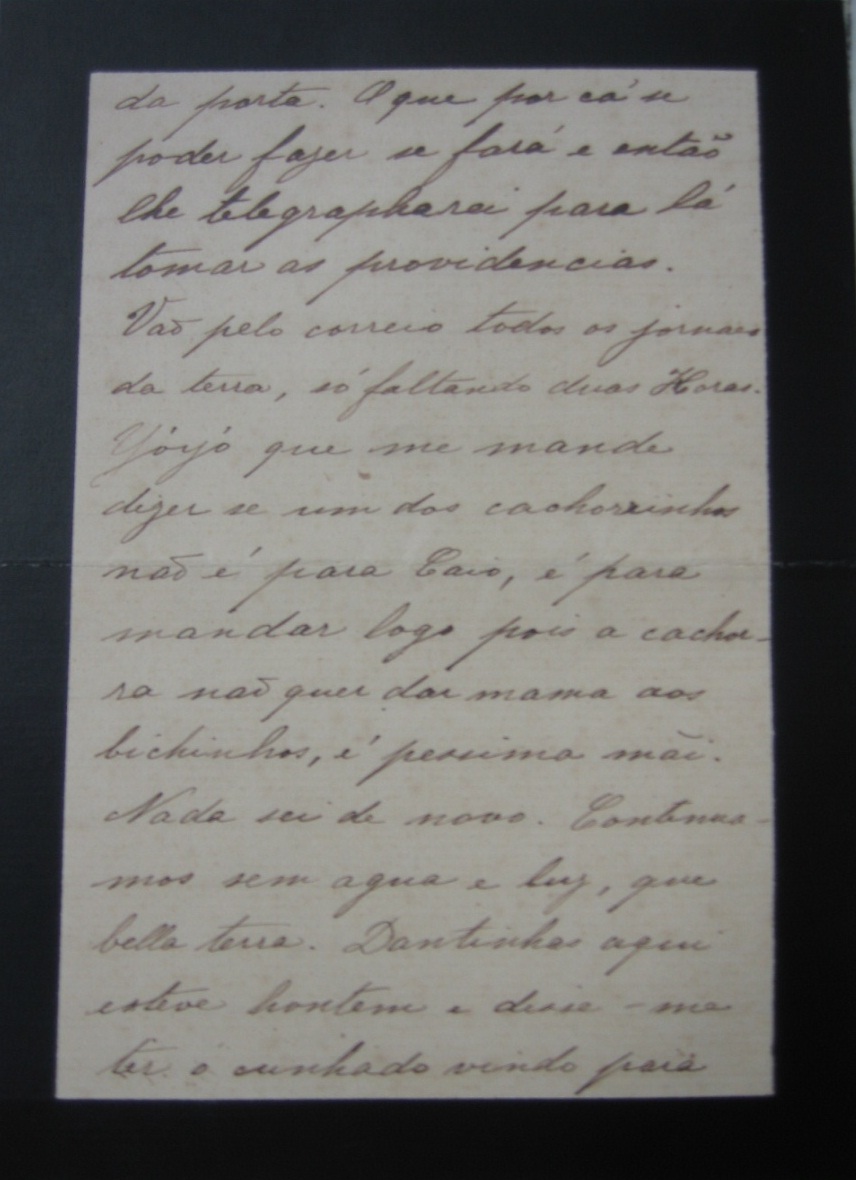 da porta. O que por cá se
poder fazer se fará e então
lhe telegrapharei para lá
tomar as providencias.
Vaõ pelo correio todos os jornaes
da terra, só faltando duas Horas.
Yôyô que me mande
dizer se um dos cachorrinhos
naõ é para Caio, é para
mandar logo pois a cachor-
ra naõ quer dar mama aos
bichinhos, é pessima mãi.
Nada sei de novo. Continua-
mos sem agua e luz, que
bella terra. Dantinhas aqui
esteve hontem e disse-me
ter o cunhado vindo para